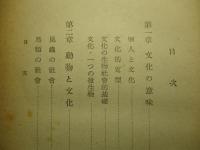 目次
第一章 文化の意味
個人と文化
文化的定型
文化の生物社會的基礎
文化・一つの發生物
第二章 動物と文化
昆蟲の社會
鳥類の社會
目次